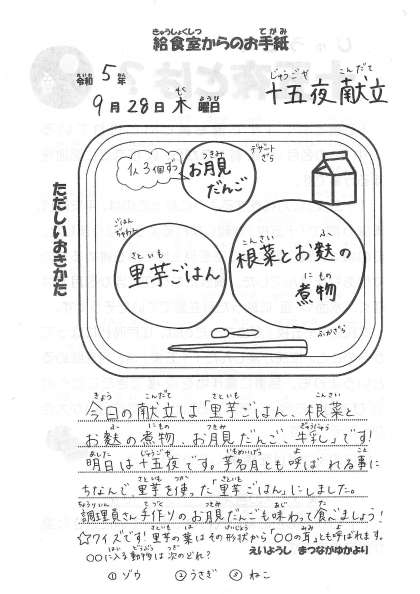 給食室からのお手紙
令和5年
9月28日木曜日
十五夜献立
ただしいおきかた
1人3個ずつ
お月見だんご
デザートざら
ごはんちゃわん
里芋ごはん
根菜とお麩の煮物
ふかざら
今日の献立は「里芋ごはん、根菜と
お麩の煮物、お月見だんご、牛乳」です!
明日は十五夜です。芋名月とも呼ばれる事に
ちなんで、里芋を使った「里芋ごはん」にしました。
調理員さん手作りのお月見だんごも味わって食べましょう!
☆クイズです!里芋の葉はその形状から「〇〇の耳」とも呼ばれます。
〇〇に入る動物は次のどれ?
えいようし まつながゆかより
①ゾウ ②うさぎ ③ねこ